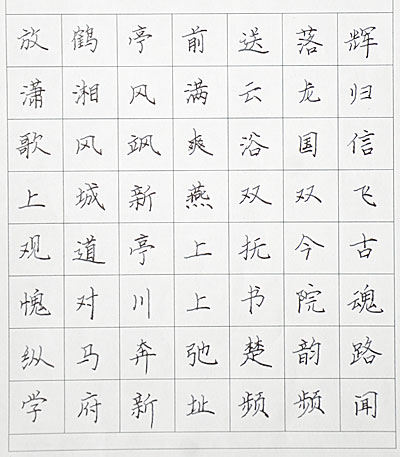 放鹤亭前送落辉
潇湘风满云龙归
歌风飒爽浴国信
上城新燕双双飞
观道亭上抚今古
愧对川上书院魂
纵马奔弛楚韵路
学府新址频频闻